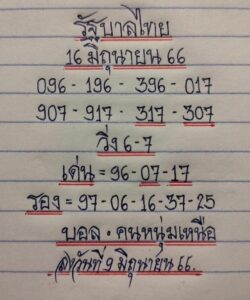 รัฐบาลไทย
16 มิถุนายน 66
096 - 196 - 396 - 017
907 - 917 - 317 - 307
วิ่ง 6-7
เด่น = 96-07-17
รอง = 97-06-16-37-25
บอล. คนหนุ่มเหนือ
(ส)วันที่ 9 มิถุนายน 66.